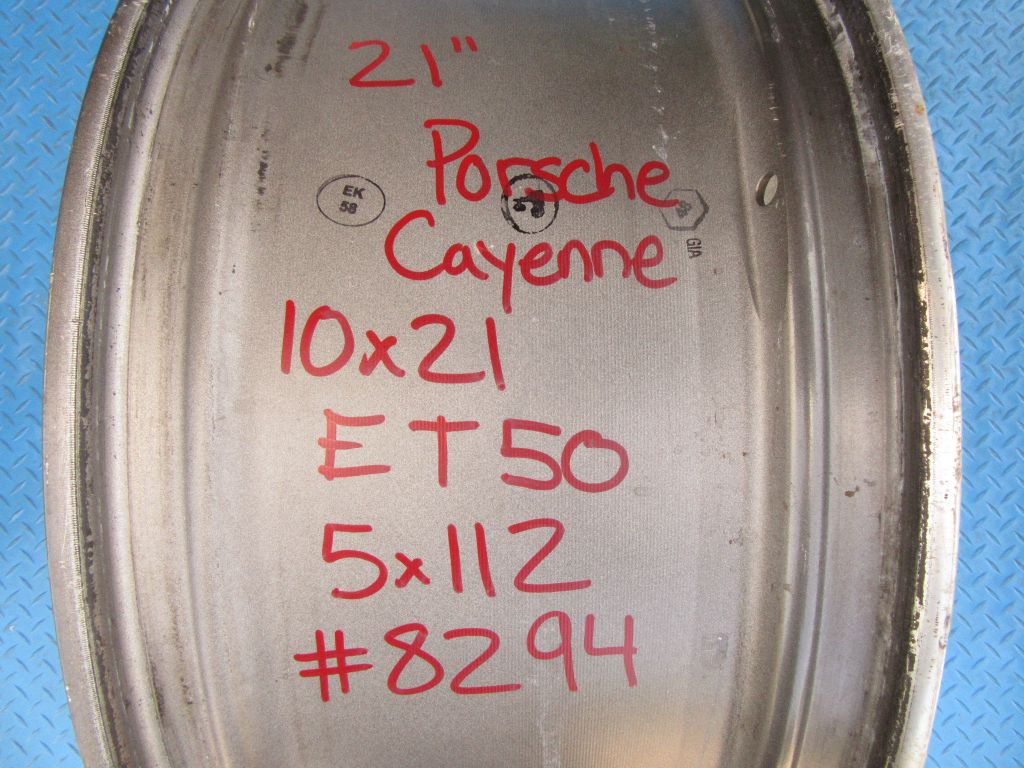 21"
Porsche
EK
58
GIA
Cayenne
10x21
ET50
5x112
#8294